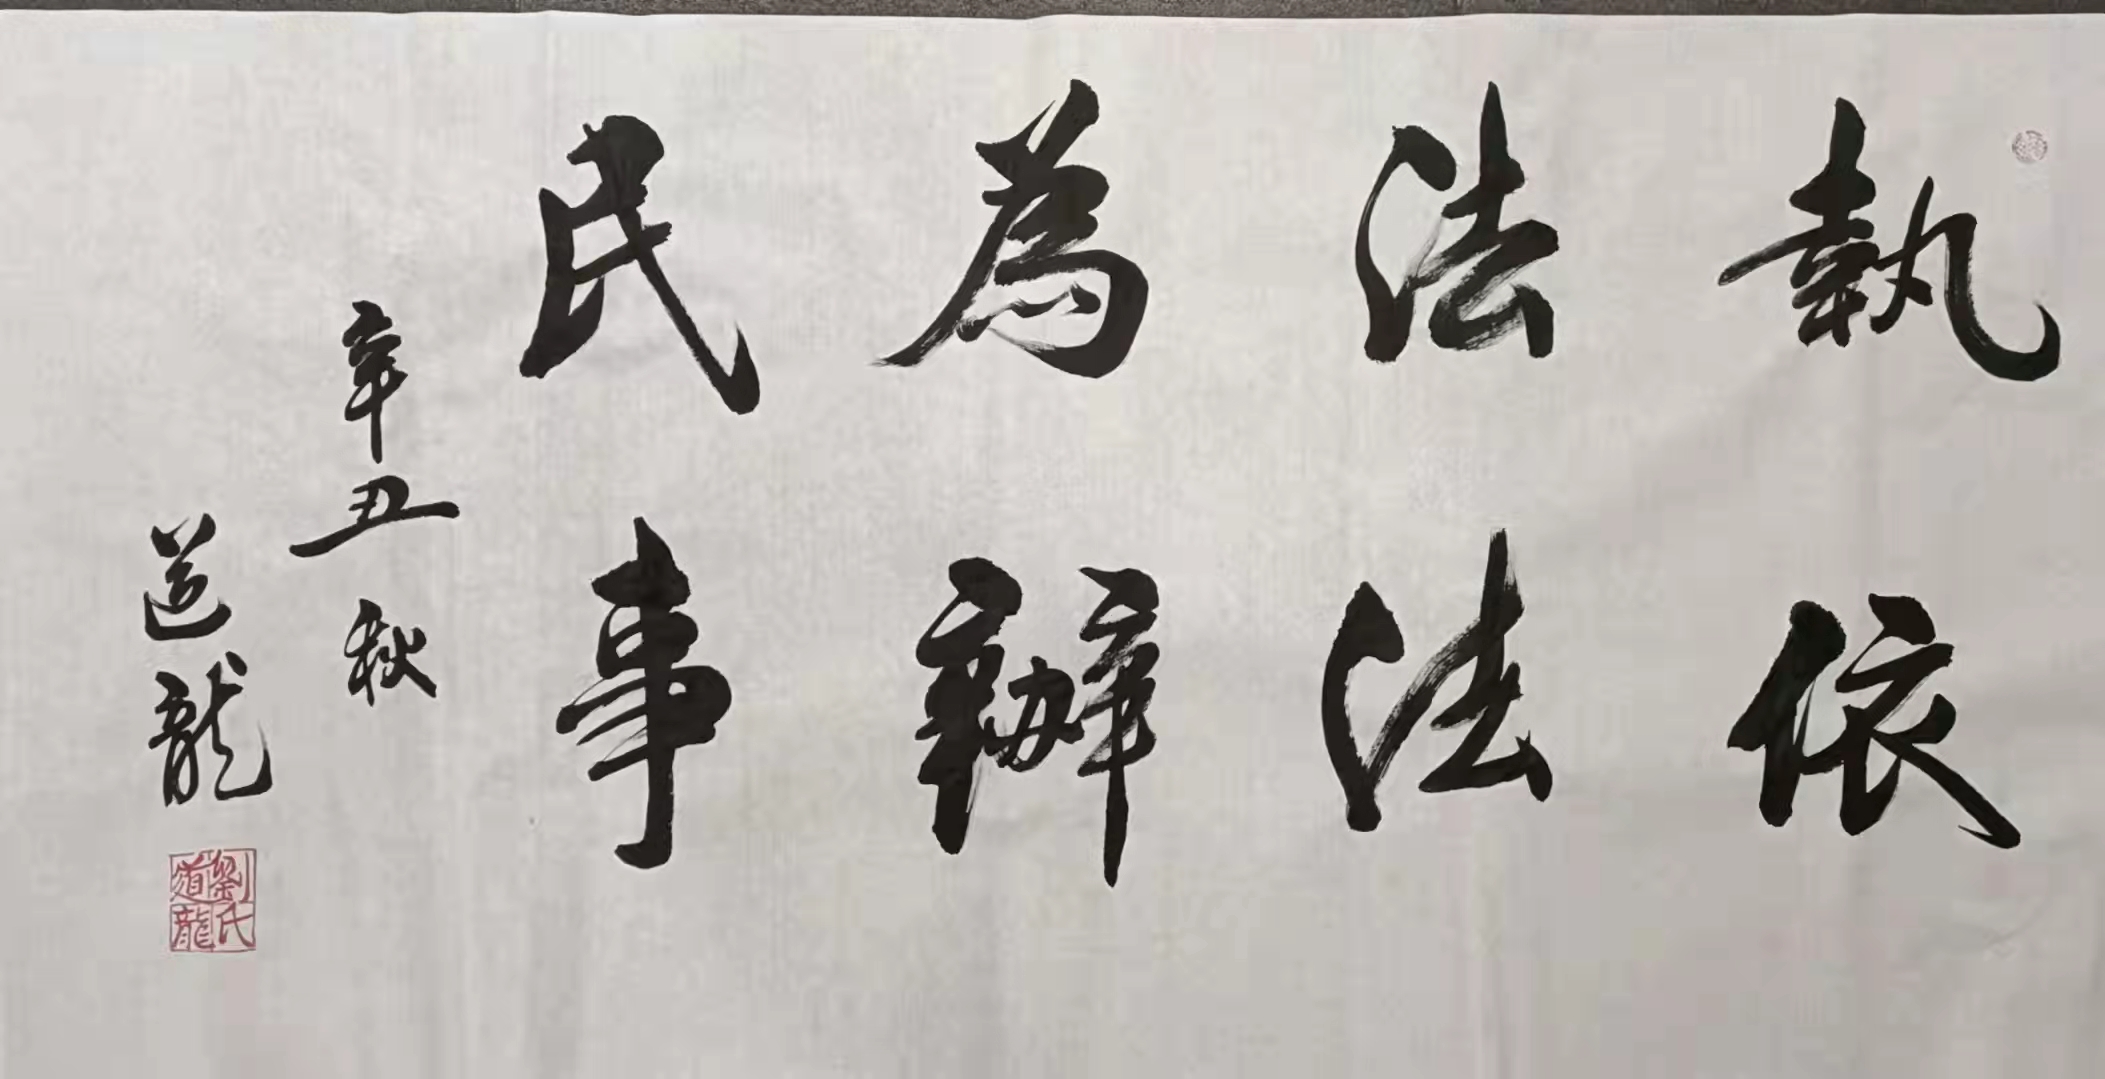 執法為民
依法辦事
辛丑秋
道龍
劉氏道龍